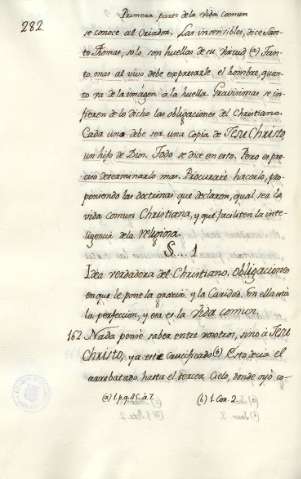 Primera parte de la vida comun
282
se conoce al Criador. Las insensibles, dice San-
to Thomas, solo son huellas de su virtud (a) Tan-
to mas al vivo debe expresarle el hombre, quan-
to va de la imagen a la huella. Gravisimas se in-
fieren de lo dicho las obligaciones del Christiano.
Cada uno debe ser una copia de Jesu Christo,
un hijo de Dios. Todo se dice en esto. Pero es pre-
ciso determinarlo mas. Procuraré hacerlo, pro-
poniendo las doctrinas que declaren, qual sea la
vida comun Christiana, y que faciliten la inte-
ligencia de la religiosa.
S... 1
Idea verdadera del Christiano. Obligaciones
en que le pone la gracia y la Caridad. En ellas está
la perfeccion, y esa es la vida comun.
162 Nada pensé saber entre vosotros, sino á Jesu
Christo, ya este crucificado (b) Esto decia el
arrebatado hasta el tercer Cielo, donde oyó co-
(a) 1. p. q. 45. a. 7. (b) 1. Cor. 2.